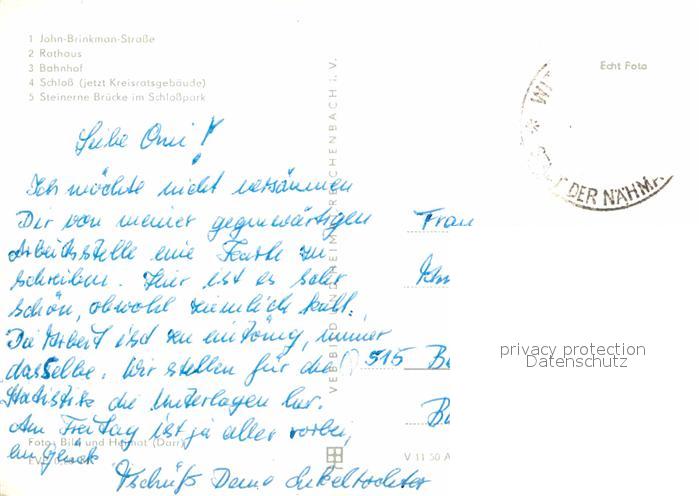 1 John-Brinkman-Straße
2 Rathaus
3 Bahnhof
4 Schloß (jetzt Kreisratsgebäude)
5 Steinerne Brücke im Schloßpark
Echt Foto
WI
* STADT DER NÄHM
Liebe Omi!
Ich möchte nicht versäumen
Dir von meiner gegenwärtigen
Arbeitsstelle eine Karte zu
schreiben. Hier ist es sehr
schön, obwohl ziemlich kalt.
Die Arbeit ist zu eintönig, immer
dasselbe. Wir stellen für die
Statistik die Unterlagen her.
Am Freitag ist ja alles vorbei,
ein Glück
Tschüß Deine Enkeltochter
Frau
515 B
B
VEB BILD UND HEIMAT REICHENBACH i. V.
Foto: Bild und Heimat (Darr)
V 11 50 A
privacy protection
Datenschutz